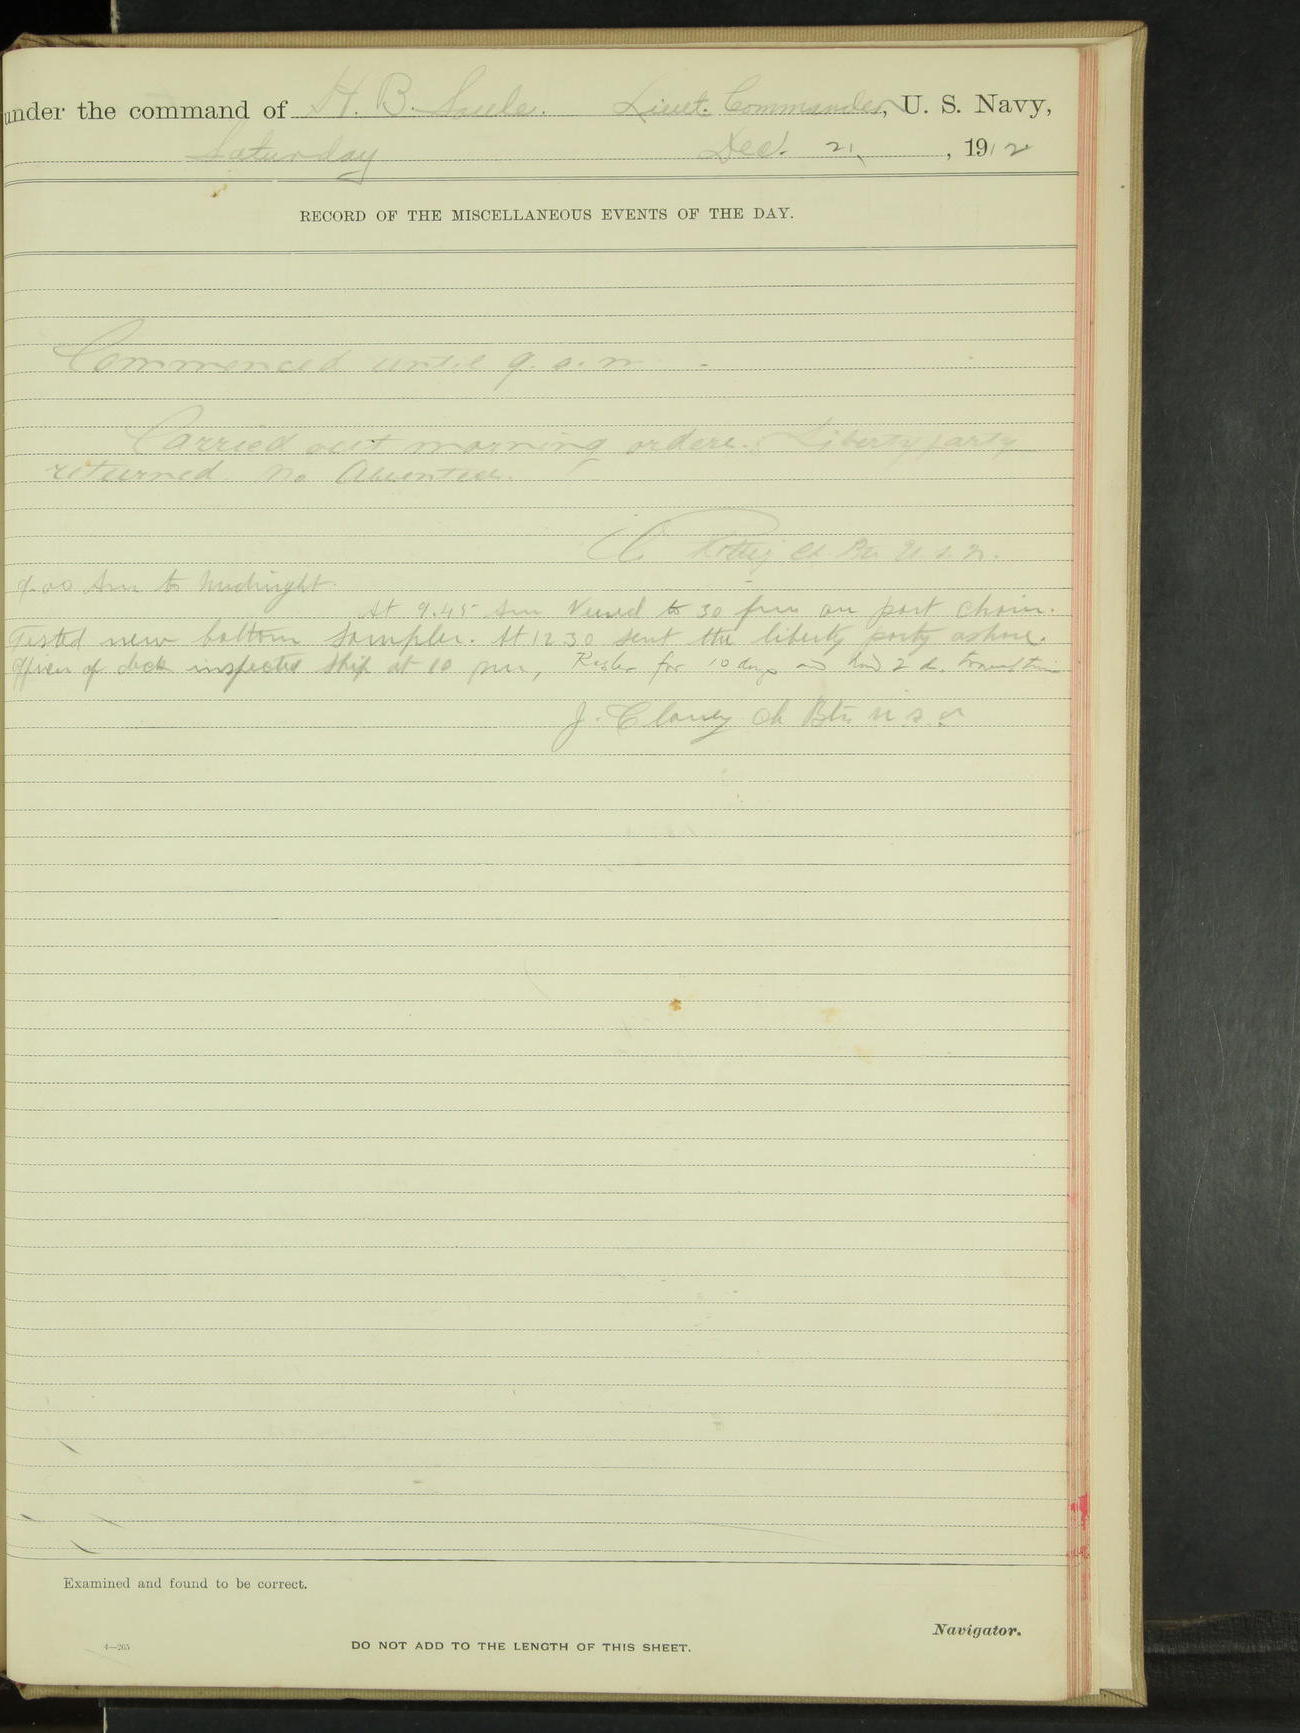 under the command of H. B. Soule. Lieut. Commander, U. S. Navy,
Saturday Dec. 21, 1912
RECORD OF THE MISCELLANEOUS EVENTS OF THE DAY.
Commenced until 9. a. m
Carried out morning orders. Liberty party
returned. No Absentees.
Ch. U. S. N.
9.00 Am to Midnight
At 9.45 Am Veered to 30 fms on port chain.
Tested new bottom sampler. At 12 30 sent the liberty party ashore.
Officer of deck inspected ship at 10 pm, for 10 days and 2
J. Clancy Ch Btn U S N
Examined and found to be correct.
Navigator.
4—265
DO NOT ADD TO THE LENGTH OF THIS SHEET.